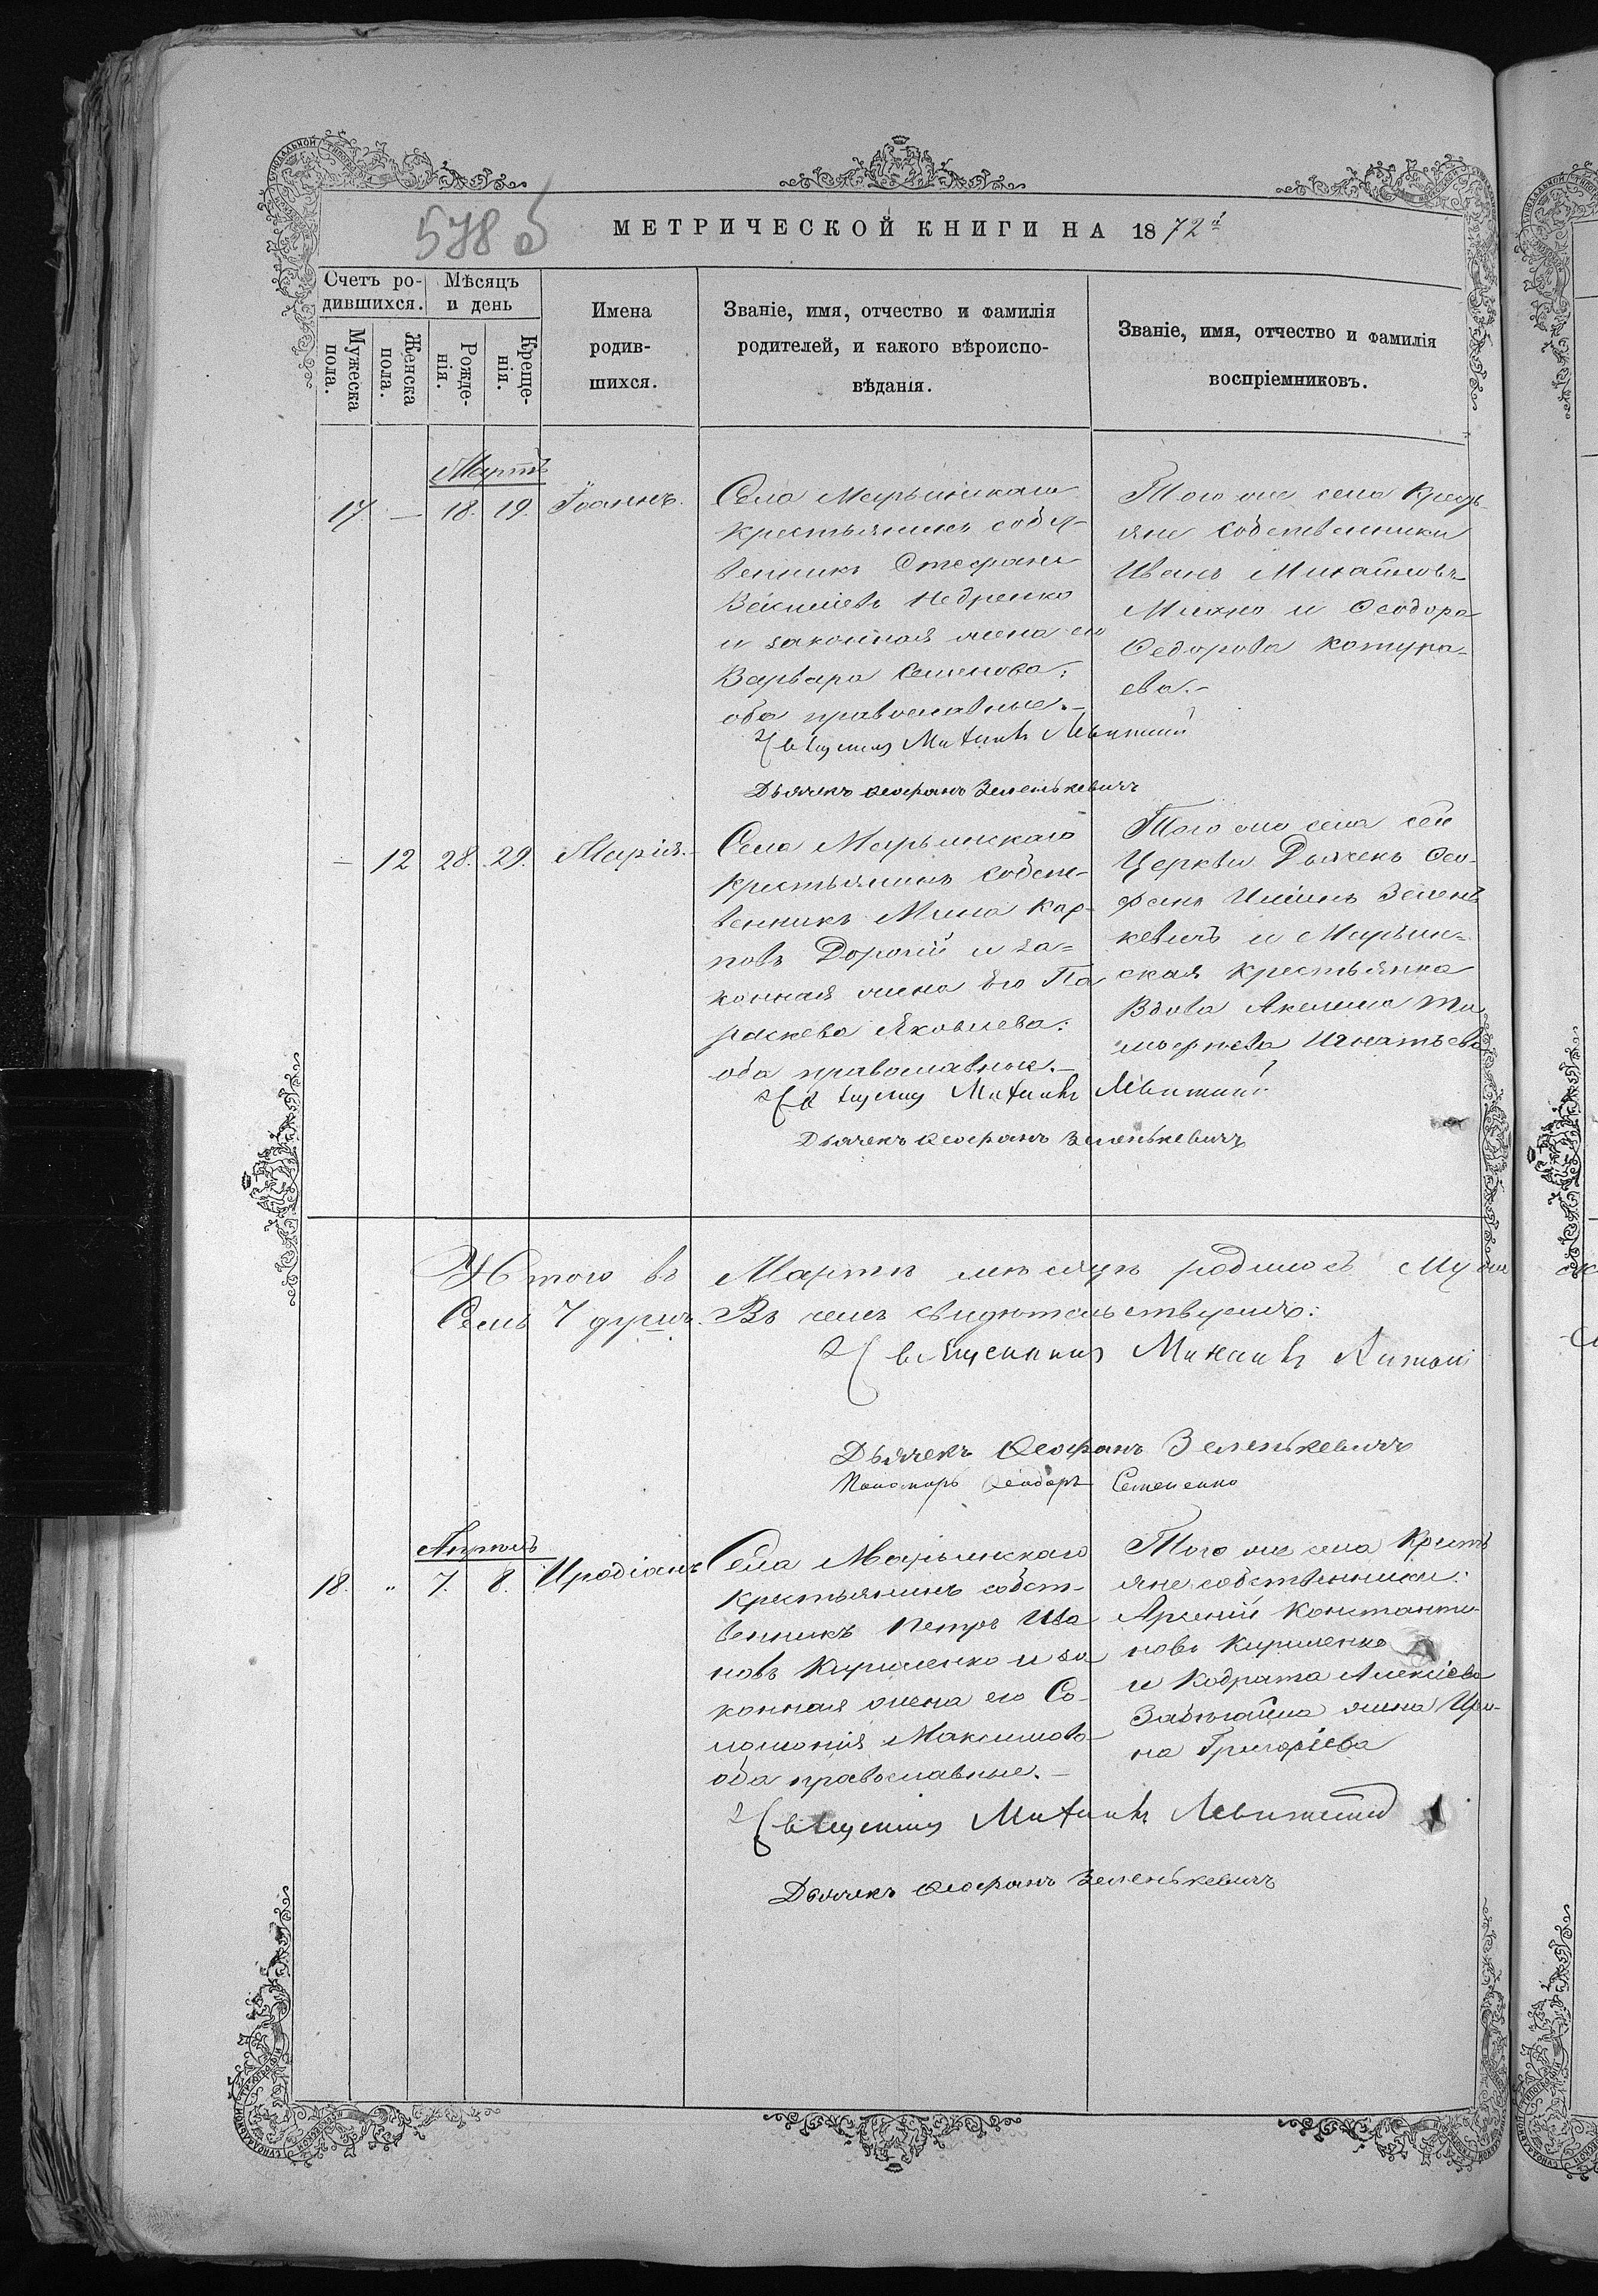 578 об
МЕТРИЧЕСКОЙ КНИГИ НА 1872й
Счетъ ро-
дившихся.
Мѣсяцъ
и день
Мужеска
пола.
Женска
пола.
Рожде-
нія.
Креще-
нія.
Имена
родив-
шихся.
Званіе, имя, отчество и фамилія
родителей, и какого вѣроиспо-
вѣданія.
Званіе, имя, отчество и фамилія
воспріемниковъ.
Мартъ
17. — 18. 19. Іоаннъ.
Села Марьинскаго
крестьянинъ собст-
венникъ Стефанъ
Василіевъ
и законная жена его
Варвара Семенова;
оба православные.–
Того же села Кресть
яне Собственники
Иванъ Михайловъ
и Феодора
Федорова
ева.–
Священникъ Михаилъ Левитскій
Дьячекъ Феофанъ Зеленькевичъ
– 12 28. 29. Марія.–
Села Марьинскаго
крестьянинъ Собст-
венникъ Мина Кар-
повъ Дорогій и за-
конная жена его Па
раскева Яковлева:
оба православные.–
Того же села сей
Церкви Дьячекъ Фео-
фанъ Зелень
кевичъ и Марьин-
ская крестьянка
Вдова Акелина
Игнатьева
Священникъ Михаилъ Левитскій
Дьячекъ Феофанъ Зеленькевичъ
Итого въ Мартѣ мѣсяцѣ родилось Муж
Семь 7 душъ. Въ чемъ свидѣтельствуемъ:
Священникъ Михаилъ
Дьячекъ Феофанъ Зеленькевичъ
Пономарь Феодоръ Семененко
Апрѣль
18. „ 7. 8. Иродіонъ
Села Марьинскаго
крестьянинъ собст-
венникъ Петръ Ива
новъ Кириленко и за
конная жена его Со-
ломонія Максимова
оба православные.–
Того же села Кресть
яне собственники:
Арсеній Константи-
новъ Кириленко
и Кодрата Алексіева
жена Ири-
на Григоріева
Священникъ Михаилъ Левитскій
Дьячекъ Феофанъ Зеленькевичъ